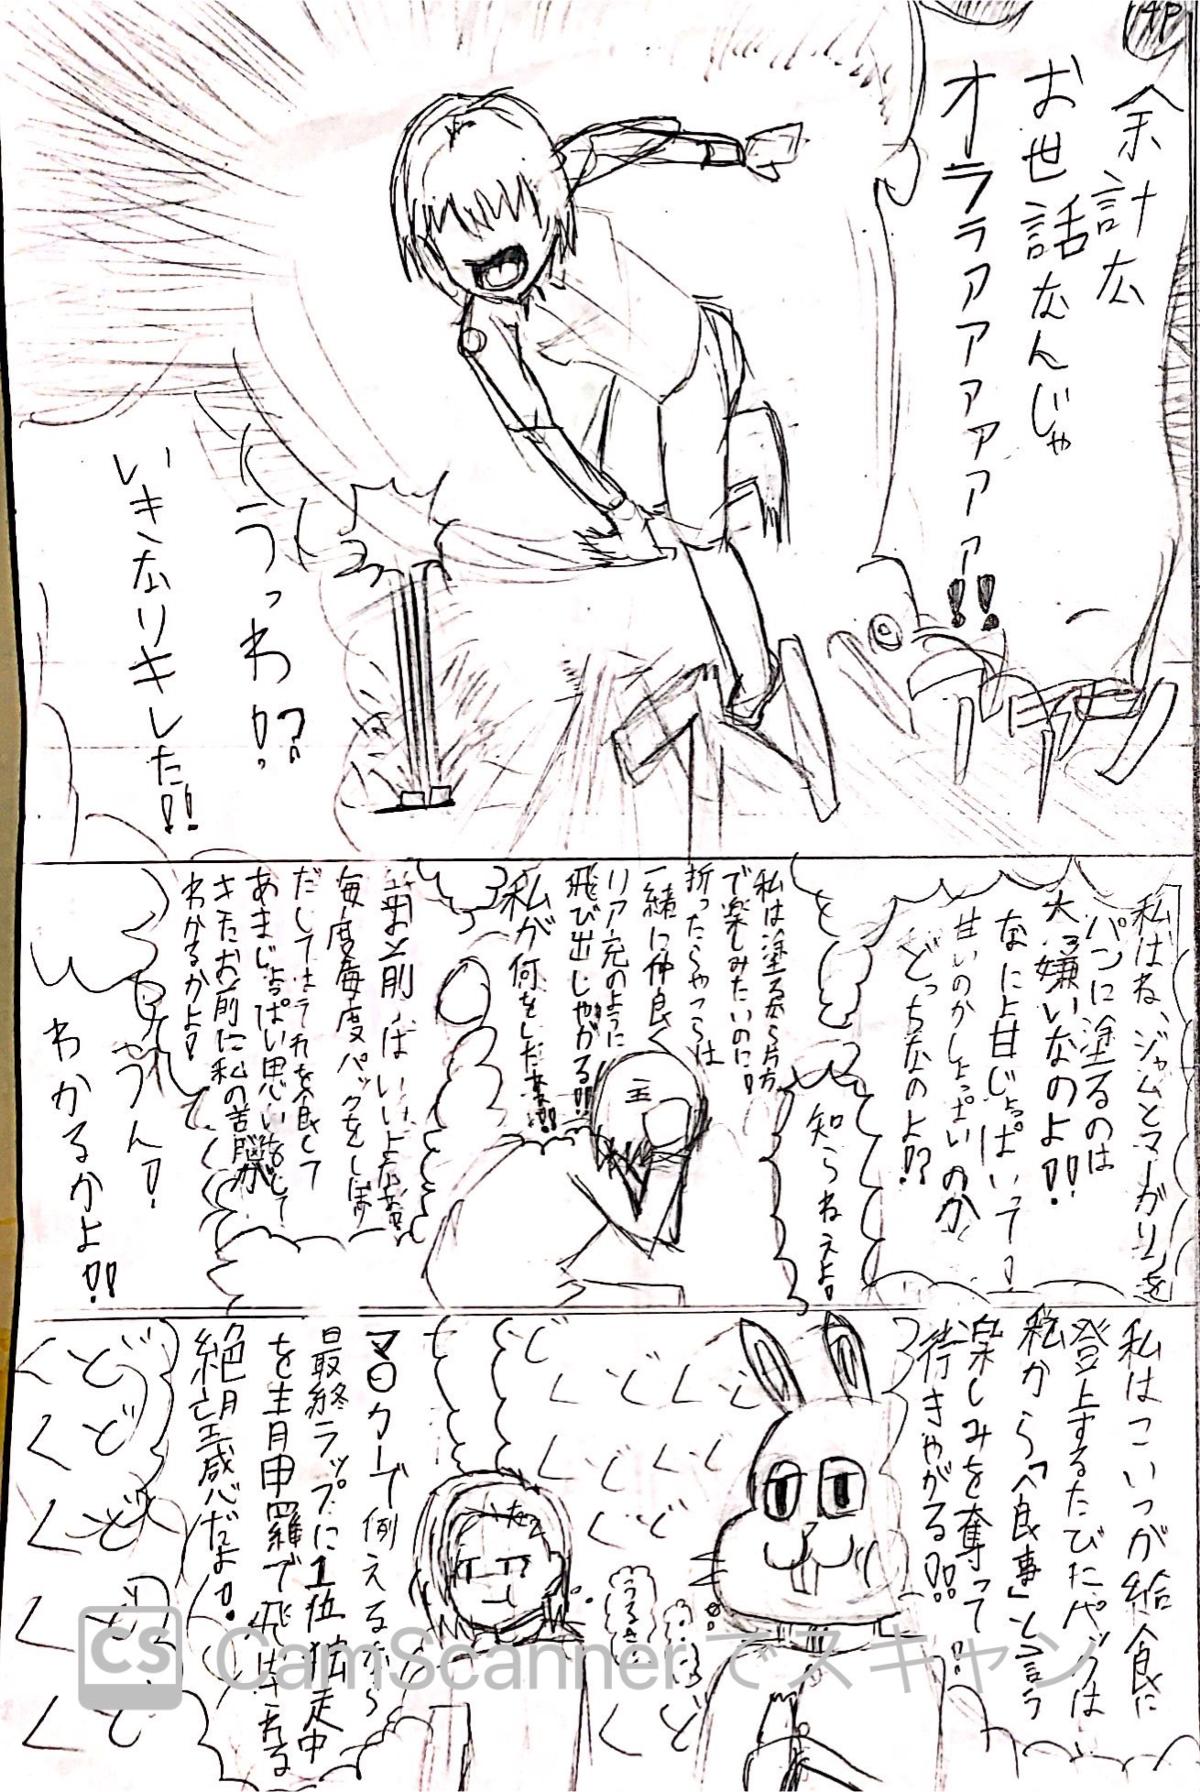 14P
余計な
お世話なんじゃ
オラララァァァァァァァ!!
うっわ!?
いきなりキレた!!
私はね、ジャムとマーガリンを
パンに塗るのは
大っ嫌いなのよ!!
なによ甘じょっぱいって!
甘いのかしょっぱいのか
どっちなのよ!?
知らねえよ!
私は塗るなら片方
で楽しみたいのに!
折ったらやつらは
一緒に仲良く
リア充のように
飛び出しやがる!!
私が何をした!!
お前はいいよな
毎度毎度パックをしぼり
だしてはそれを食して
あまじょっぱい思いをして
きたお前に私の苦悩が
わかるかよ!
うん!
わかるかよ!!
私はこいつが給食に
登上するたびにたやつは
私から「食事」と言う
楽しみを奪って
行きやがる!!
どくどくどくどく
うるさい
マ〇カーで例えるなら
最終ラップに1位独走中
を青甲羅で飛ばされる
絶望感だよ!
どくどくどくどくどく
CS CamScannerでスキャン